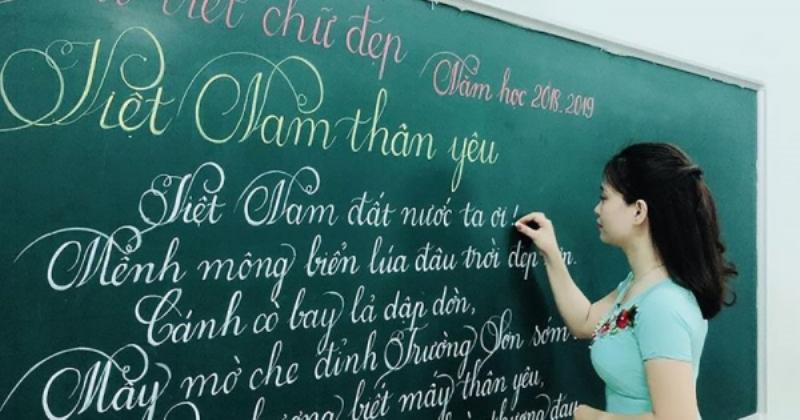 viết chữ đẹp
Năm học 2018-2019
Việt Nam thân yêu
Việt Nam đất nước ta ơi!
Mênh mông biển lúa đâu trời đẹp
Cánh cò bay lả dập dờn,
Mây mờ che đỉnh Trường Sơn sớm
biết mấy thân yêu,
thương đau